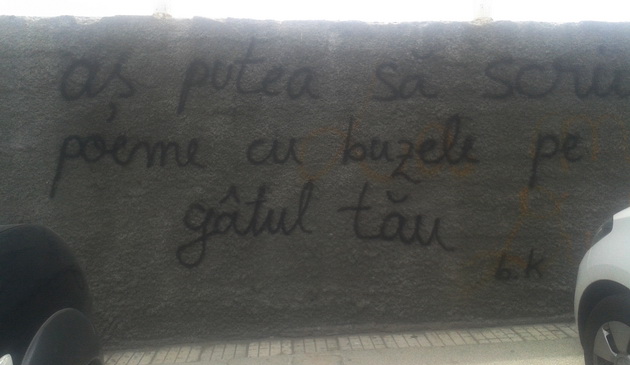 aș putea să scriu
poeme cu buzele pe
gâtul tău
b.K